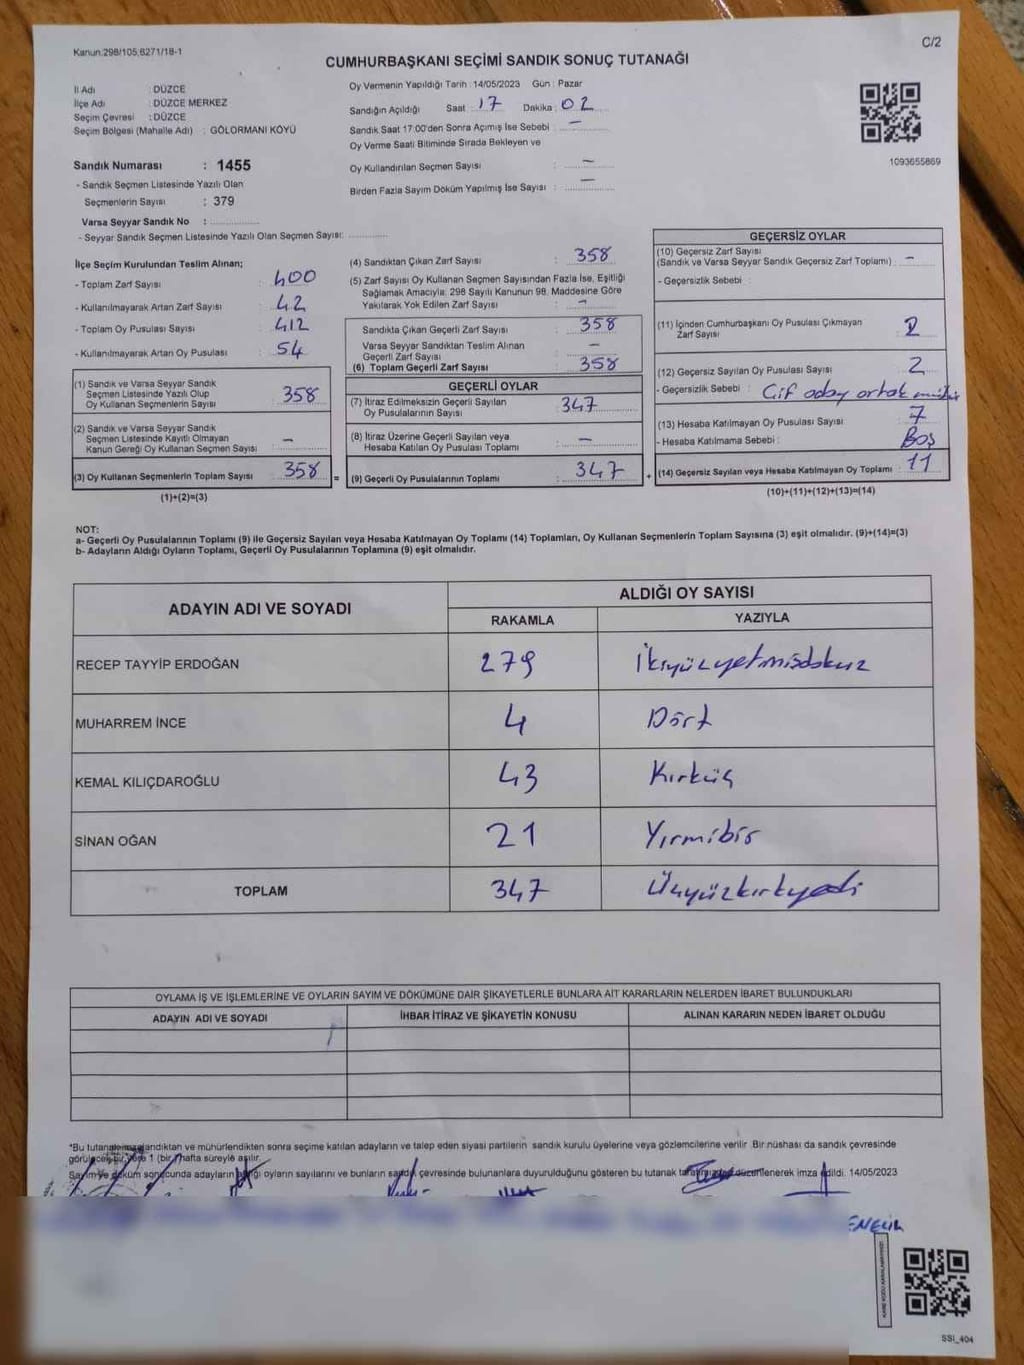 Kanun.298/105,6271/18-1
C/2
CUMHURBAŞKANI SEÇİMİ SANDIK SONUÇ TUTANAĞI
İl Adı : DÜZCE
İlçe Adı : DÜZCE MERKEZ
Seçim Çevresi : DÜZCE
Seçim Bölgesi (Mahalle Adı) : GÖLORMANI KÖYÜ
Sandık Numarası : 1455
- Sandık Seçmen Listesinde Yazılı Olan
Seçmenlerin Sayısı : 379
Varsa Seyyar Sandık No :
- Seyyar Sandık Seçmen Listesinde Yazılı Olan Seçmen Sayısı:
Oy Vermenin Yapıldığı Tarih : 14/05/2023 Gün : Pazar
Sandığın Açıldığı Saat : 17 Dakika : 02
Sandık Saat 17:00'den Sonra Açımış İse Sebebi : –
Oy Verme Saati Bitiminde Sırada Bekleyen ve
Oy Kullandırılan Seçmen Sayısı : –
Birden Fazla Sayım Döküm Yapılmış İse Sayısı : –
1093655869
İlçe Seçim Kurulundan Teslim Alınan;
- Toplam Zarf Sayısı : 400
- Kullanılmayarak Artan Zarf Sayısı : 42
- Toplam Oy Pusulası Sayısı : 412
- Kullanılmayarak Artan Oy Pusulası : 54
(1) Sandık ve Varsa Seyyar Sandık
Seçmen Listesinde Yazılı Olup
Oy Kullanan Seçmenlerin Sayısı : 358
(2) Sandık ve Varsa Seyyar Sandık
Seçmen Listesinde Kayıtlı Olmayan
Kanun Gereği Oy Kullanan Seçmen Sayısı : –
(3) Oy Kullanan Seçmenlerin Toplam Sayısı : 358 =
(1)+(2)=(3)
(4) Sandıktan Çıkan Zarf Sayısı : 358
(5) Zarf Sayısı Oy Kullanan Seçmen Sayısından Fazla İse, Eşitliği
Sağlamak Amacıyla; 298 Sayılı Kanunun 98. Maddesine Göre
Yakılarak Yok Edilen Zarf Sayısı : –
Sandıkta Çıkan Geçerli Zarf Sayısı : 358
Varsa Seyyar Sandıktan Teslim Alınan
Geçerli Zarf Sayısı : –
(6) Toplam Geçerli Zarf Sayısı : 358
GEÇERLİ OYLAR
(7) İtiraz Edilmeksizin Geçerli Sayılan
Oy Pusulalarının Sayısı : 347
(8) İtiraz Üzerine Geçerli Sayılan veya
Hesaba Katılan Oy Pusulası Toplamı : –
(9) Geçerli Oy Pusulalarının Toplamı : 347 +
GEÇERSİZ OYLAR
(10) Geçersiz Zarf Sayısı
(Sandık ve Varsa Seyyar Sandık Geçersiz Zarf Toplamı) : –
- Geçersizlik Sebebi :
(11) İçinden Cumhurbaşkanı Oy Pusulası Çıkmayan
Zarf Sayısı : 2
(12) Geçersiz Sayılan Oy Pusulası Sayısı : 2
- Geçersizlik Sebebi : Çif aday ortak
(13) Hesaba Katılmayan Oy Pusulası Sayısı : 7
- Hesaba Katılmama Sebebi : Boş
(14) Geçersiz Sayılan veya Hesaba Katılmayan Oy Toplamı : 11
(10)+(11)+(12)+(13)=(14)
NOT:
a- Geçerli Oy Pusulalarının Toplamı (9) ile Geçersiz Sayılan veya Hesaba Katılmayan Oy Toplamı (14) Toplamları, Oy Kullanan Seçmenlerin Toplam Sayısına (3) eşit olmalıdır. (9)+(14)=(3)
b- Adayların Aldığı Oyların Toplamı, Geçerli Oy Pusulalarının Toplamına (9) eşit olmalıdır.
ADAYIN ADI VE SOYADI
ALDIĞI OY SAYISI
RAKAMLA YAZIYLA
RECEP TAYYİP ERDOĞAN 279 İkiyüzyetmişdokuz
MUHARREM İNCE 4 Dört
KEMAL KILIÇDAROĞLU 43 Kırküç
SİNAN OĞAN 21 Yirmibir
TOPLAM 347 Üçyüzkırkyedi
OYLAMA İŞ VE İŞLEMLERİNE VE OYLARIN SAYIM VE DÖKÜMÜNE DAİR ŞİKAYETLERLE BUNLARA AİT KARARLARIN NELERDEN İBARET BULUNDUKLARI
ADAYIN ADI VE SOYADI İHBAR İTİRAZ VE ŞİKAYETİN KONUSU ALINAN KARARIN NEDEN İBARET OLDUĞU
*Bu tutanak imzalandıktan ve mühürlendikten sonra seçime katılan adayların ve talep eden siyasi partilerin sandık kurulu üyelerine veya gözlemcilerine verilir. Bir nüshası da sandık çevresinde
görülecek bir yere 1 (bir) hafta süreyle asılır.
Sayım ve döküm sonucunda adayların aldığı oyların sayılarını ve bunların sandık çevresinde bulunanlara duyurulduğunu gösteren bu tutanak tarafımızdan düzenlenerek imza edildi. 14/05/2023
SSI_404